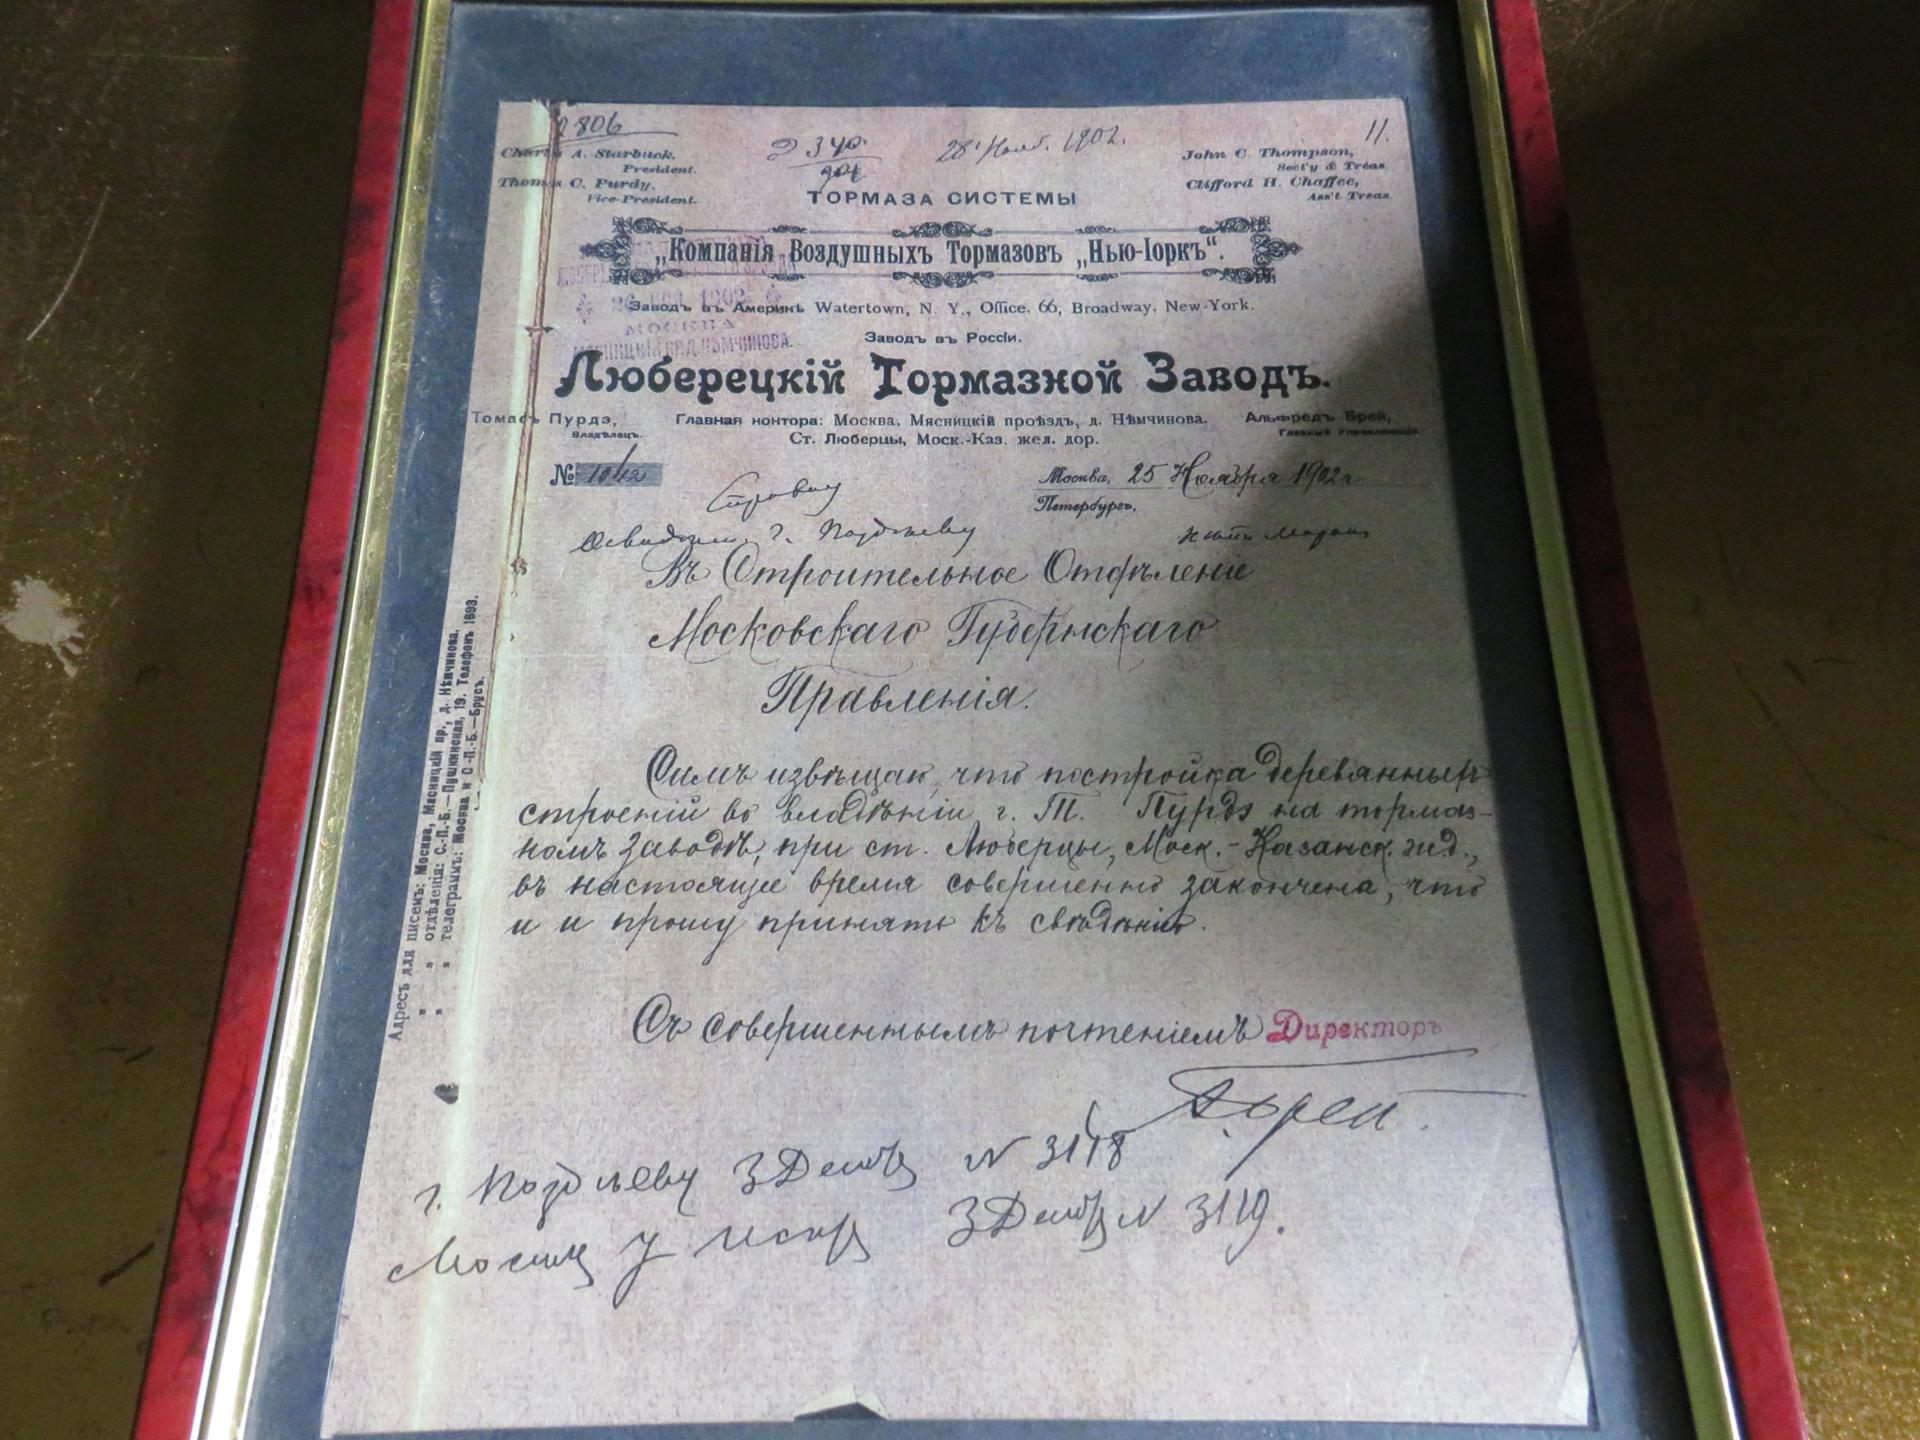 2806
2340
28 Нояб. 1902.
11.
Charles A. Starbuck,
President.
Thomas C. Purdy,
Vice-President.
John C. Thompson,
Sect'y & Treas.
Clifford H. Chaffee,
Ass't Treas.
ТОРМАЗА СИСТЕМЫ
„Компанія Воздушныхъ Тормазовъ „Нью-Іоркъ“.
Заводъ въ Америкѣ Watertown, N. Y., Office, 66, Broadway, New-York.
Заводъ въ Россіи.
МОСКВА
МЯСНИЦКІЙ ПР. Д. НѢМЧИНОВА.
Люберецкій Тормазной Заводъ.
Томасъ Пурдэ,
Владѣлецъ.
Главная контора: Москва, Мясницкій проѣздъ, д. Нѣмчинова.
Ст. Люберцы, Моск.-Каз. жел. дор.
Альфредъ Брей,
Главный Управляющій
№ 1042
Москва, 25 Ноября 1902 г.
Петербургъ,
Справку
г. Поздѣеву
Въ Строительное Отдѣленіе
Московскаго Губернскаго
Правленія.
Симъ извѣщаю, что постройка деревянныхъ
строеній во владѣніи г. Т. Пурдэ на тормаз-
номъ заводѣ, при ст. Люберцы, Моск.-Казанск. ж.д.,
въ настоящее время совершенно закончена, что
и и прошу принять къ свѣдѣнію.
Съ совершеннымъ почтеніемъ Директоръ
А. Брей.
г. Поздѣеву 3 Декаб N 3118
3 Декаб N 3119.
Адресъ для писемъ: Москва, Мясницкій пр., д. Нѣмчинова.
" " отдѣленія: С.-П.-Б.—Пушкинская, 19. Телефонъ 1693.
" " телеграммъ: Москва и С.-П.-Б.—Брусъ.